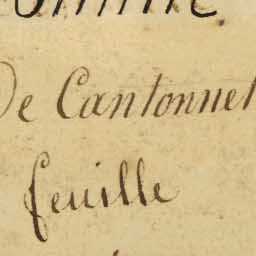 De Cantonnet
feuille